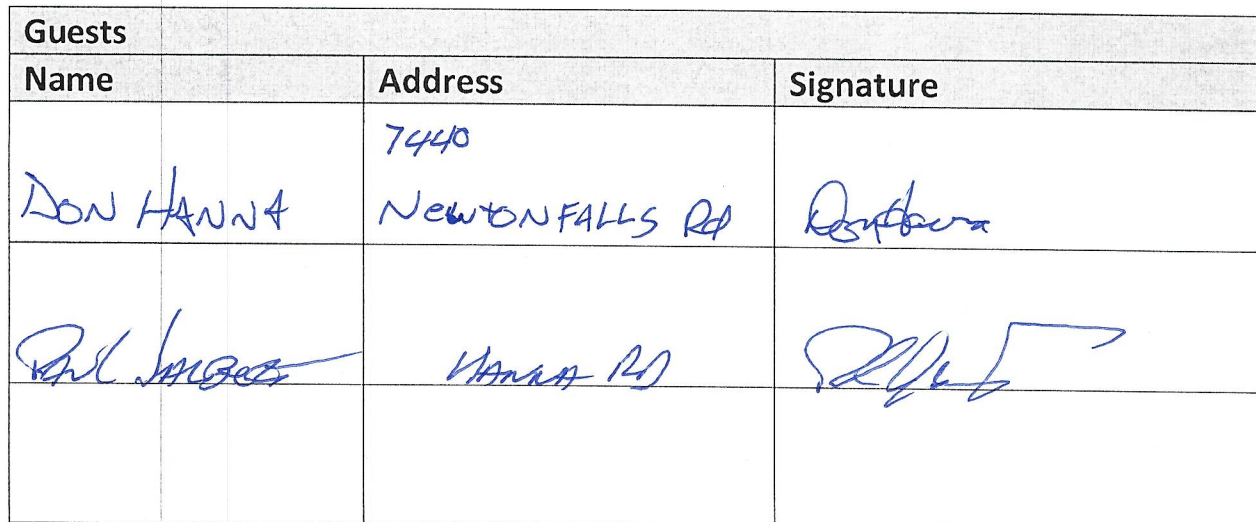 Guests
Name Address Signature
7440
DON HANNA NEWTON FALLS RD Don Hanna
PAUL HANNA RD